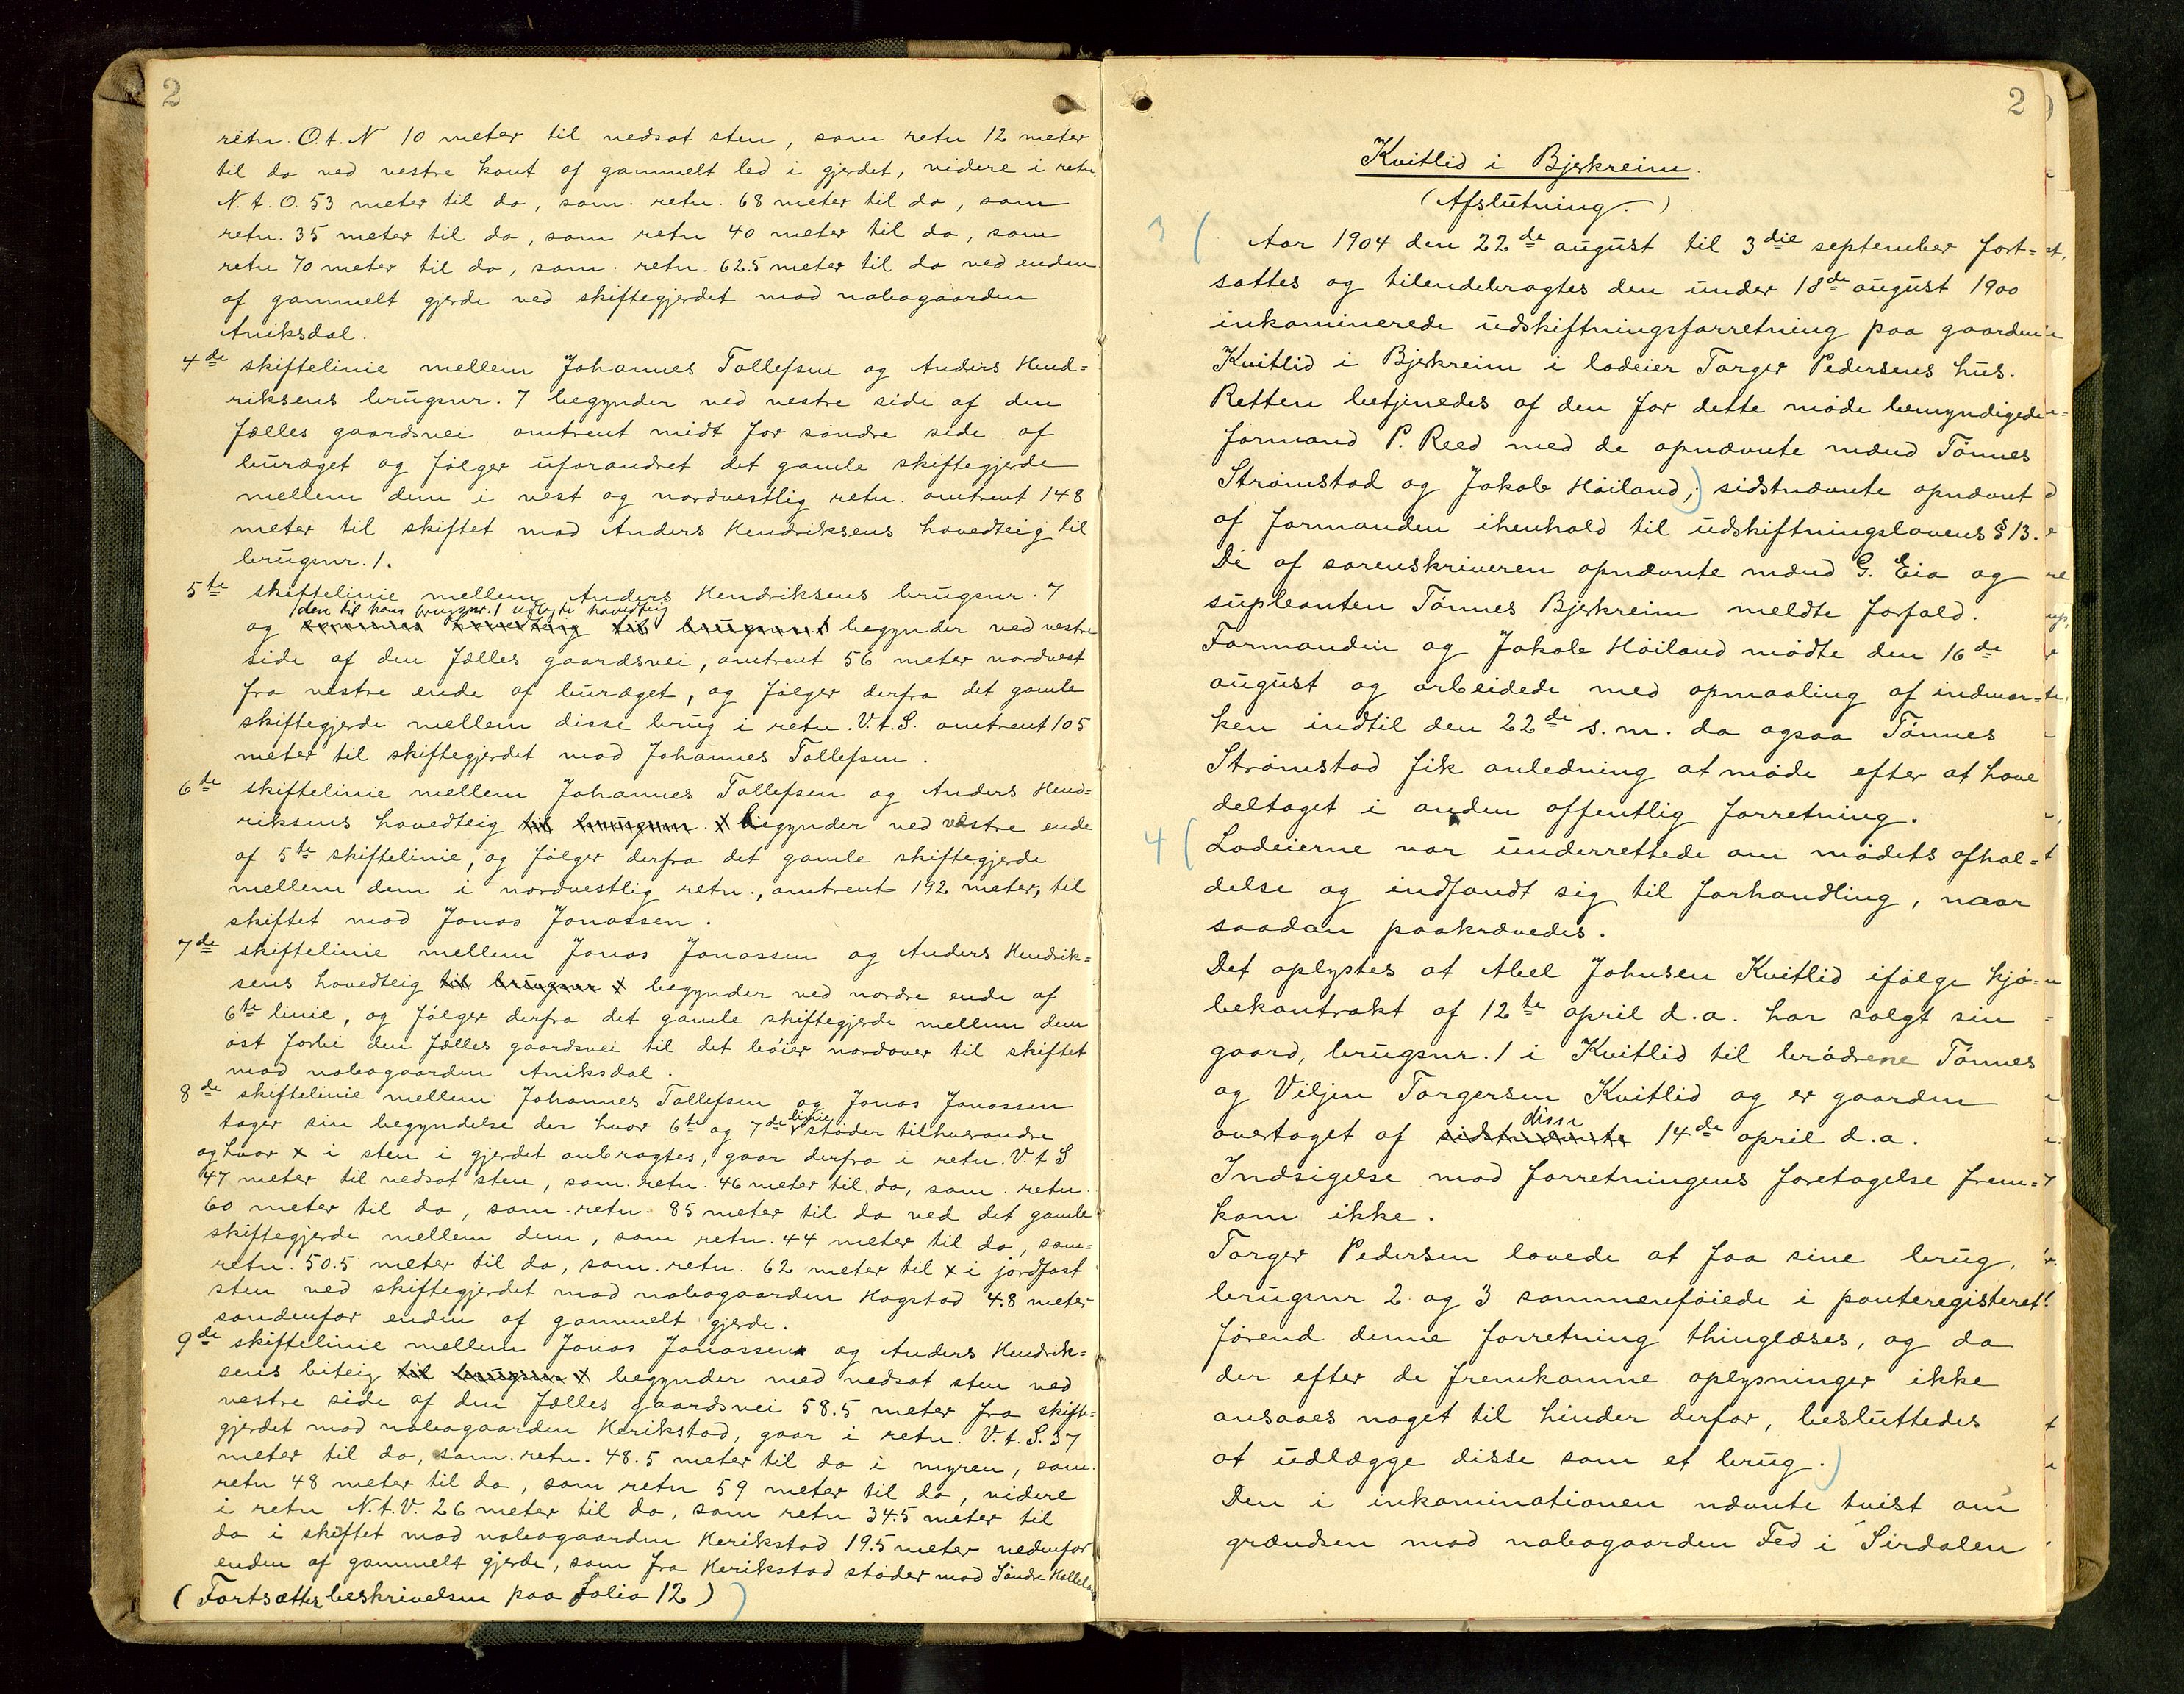 2
retn. O.t.N 10 meter til nedsat sten, sam retn 12 meter
til do ved vestre kant af gammelt led i gjerdet, videre i retn.
N.t.O. 53 meter til do, sam. retn. 68 meter til do, sam
retn. 35 meter til do, sam retn 40 meter til do, sam
retn 70 meter til do, sam. retn. 62.5 meter til do ved enden
af gammelt gjerde ved skiftegjerdet mod nabogaarden
Aniksdal.
4de skiftelinie mellem Johannes Tollefsen og Anders Hend=
riksens brugsnr. 7 begynder ved vestre side af den
fælles gaardsvei omtrent midt for søndre side af
buræget og følger uforandret det gamle skiftegjerde
mellem dem i vest og nordvestlig retn. omtrent 148
meter til skiftet mod Anders Hendriksens hovedteig til
brugsnr. 1.
5te skiftelinie mellem Anders Hendriksens brugsnr. 7
den til ham brugsnr. 1 udlagte hovedteig
og sammes hovedteig til brugsnr. 1 begynder ved vestre
side af den fælles gaardsvei, omtrent 56 meter nordvest
fra vestre ende af buræget, og følger derfra det gamle
skiftegjerde mellem disse brug i retn. V.t.S. omtrent 105
meter til skiftegjerdet mod Johannes Tollefsen.
6te skiftelinie mellem Johannes Tollefsen og Anders Hend=
riksens hovedteig til brugsnr. 1 begynder ved vestre ende
af 5te skiftelinie, og følger derfra det gamle skiftegjerde
mellem dem i nordvestlig retn., omtrent 192 meter, til
skiftet mod Jonas Jonassen.
7de skiftelinie mellem Jonas Jonassen og Anders Hendrik=
sens hovedteig til brugsnr 1 begynder ved nordre ende af
6te linie, og følger derfra det gamle skiftegjerde mellem dem
øst forbi den fælles gaardsvei til det bøier nordover til skiftet
mod nabogaarden Aniksdal.
8de skiftelinie mellem Johannes Tollefsen og Jonas Jonassen
linie
tager sin begyndelse der hvor 6te og 7de støder tilhverandre
og hvor x i sten i gjerdet anbragtes, gaar derfra i retn. V.t S
47 meter til nedsat sten, sam. retn. 46 meter til do, sam. retn.
60 meter til do, sam. retn. 85 meter til do ved det gamle
skiftegjerde mellem dem, sam retn. 44 meter til do, sam=
retn. 50.5 meter til do, sam. retn. 62 meter til x i jordfast
sten ved skiftegjerdet mod nabogaarden Hagstad 4.8 meter
søndenfor enden af gammelt gjerde.
9de skiftelinie mellem Jonas Jonassens og Anders Hendrik=
sens biteig til brugsnr 1 begynder med nedsat sten ved
vestre side af den fælles gaardsvei 58.5 meter fra skifte=
gjerdet mod nabogaarden Herikstad, gaar i retn. V.t.S. 37
meter til do, sam. retn. 48.5 meter til do i myren, sam.
retn 48 meter til do, sam retn 59 meter til do, videre
i retn N.t.V. 26 meter til do, sam retn 34.5 meter til
do i skiftet mod nabogaarden Herikstad 19.5 meter nedenfor
enden af gammelt gjerde, som fra Herikstad støder mod Søndre
(Fortsættes beskrivelsen paa folio 12)
2
Kvitlid i Bjerkreim.
(Afslutning.)
3
Aar 1904 den 22de august til 3die september fort=
sattes og tilendebragtes den under 18de august 1900
inkaminerede udskiftningsforretning paa gaarden
Kvitlid i Bjerkreim i lodeier Torger Pedersens hus.
Retten betjenedes af den for dette møde bemyndigede
formand P. Reed med de opnævnte mænd Tønnes
Strømstad og Jakob Høiland, sidstnævnte opnævnt
af formanden ihenhold til udskiftningslovens § 13.
De af sorenskriveren opnævnte mænd G. Eia og
supleanten Tønnes Bjerkreim meldte forfald.
Formanden og Jakob Høiland mødte den 16de
august og arbeidede med opmaaling af indmar=
ken indtil den 22de s.m. da ogsaa Tønnes
Strømstad fik anledning at møde efter at have
deltaget i anden offentlig forretning.
4
Lodeierne var underrettede om mødets afhol=
delse og indfandt sig til forhandling, naar
saadan paakrævedes.
Det oplystes at Abel Johnsen Kvitlid ifølge kjø=
bekontrakt af 12te april d.a. har solgt sin
gaard, brugsnr. 1 i Kvitlid til brødrene Tønnes
og Viljen Torgersen Kvitlid og er gaarden
disse
overtaget af sidstnævnte 14de april d.a.
Indsigelse mod forretningens foretagelse frem=
kom ikke.
Torger Pedersen lovede at faa sine brug,
brugsnr 2 og 3 sammenføiede i panteregisteret
førend denne forretning thinglæses, og da
der efter de fremkomne oplysninger ikke
ansaaes noget til hinder derfor, besluttedes
at udlægge disse som et brug.
Den i inkaminationen nævnte tvist om
grændsen mod nabogaarden Fed i Sirdalen